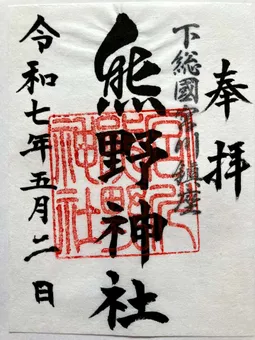 奉拝
下総國宮川鎮座
熊野神社
令和七年五月二日